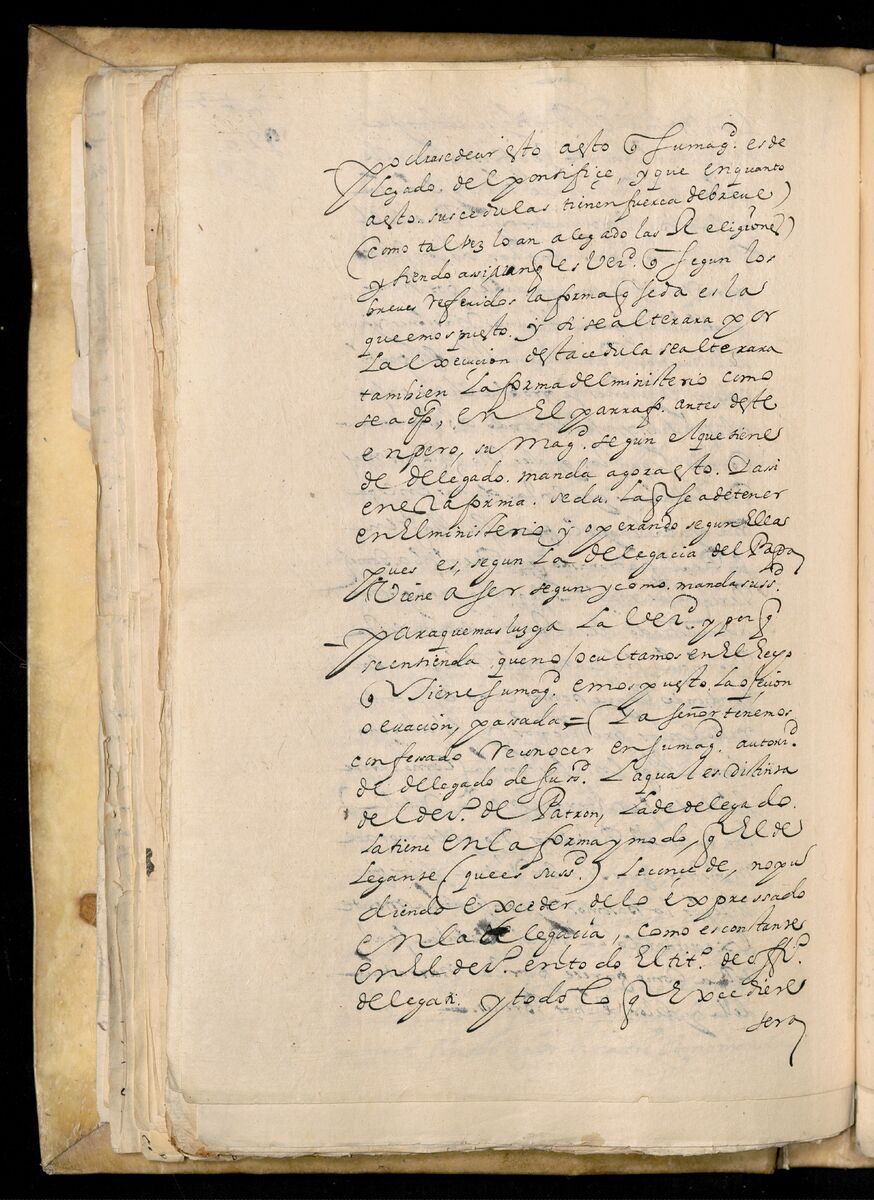 Podrase decir esto aesto q̃ su magᵈ. es de
legado. del pontifiçe, y que en quanto
aesto. sus cedulas tienen fuerça de breue)
(como tal vez lo an alegado las Religiones)
y siendo assi q̃ es Verᵈ. q̃ segun los
breues referidos la forma q̃ se da es la
que emos puesto. y si se alterara por
La execucion desta cedula se alterara
tambien La forma del ministerio como
se a dhõ, en El parrafo. antes deste
enpero, su Magᵈ. segun el que tiene
de delegado. manda agora esto. Y assi
en esta forma. se da. La q̃ se a de tener
en El ministerio y operando segun Ellas
pues es, segun La delegacia del Papa
Viene a ser segun y como. manda su ssᵈ.
Para que mas luzga La Verᵈ. y por q̃
se entienda que no ocultamos en El Rey
q̃ tiene su magᵈ. emos puesto. La obgecion
o euacion, passada, = (Ya señor tenemos
confessado reconocer en su magᵈ. autoriᵈ.
de delegado de su ssᵈ. La qual es distinta
del derº. de Patron, La de delegado.
La tiene en la forma y modo, q̃ El de
legante (que es su ssᵈ.) Le concede, no pu
diendo exceder de lo expressado
en la delegacia, como es constante
en El derº. en todo El titº. de offiº.
delegati. y todo Lo q̃ Excediere
sera